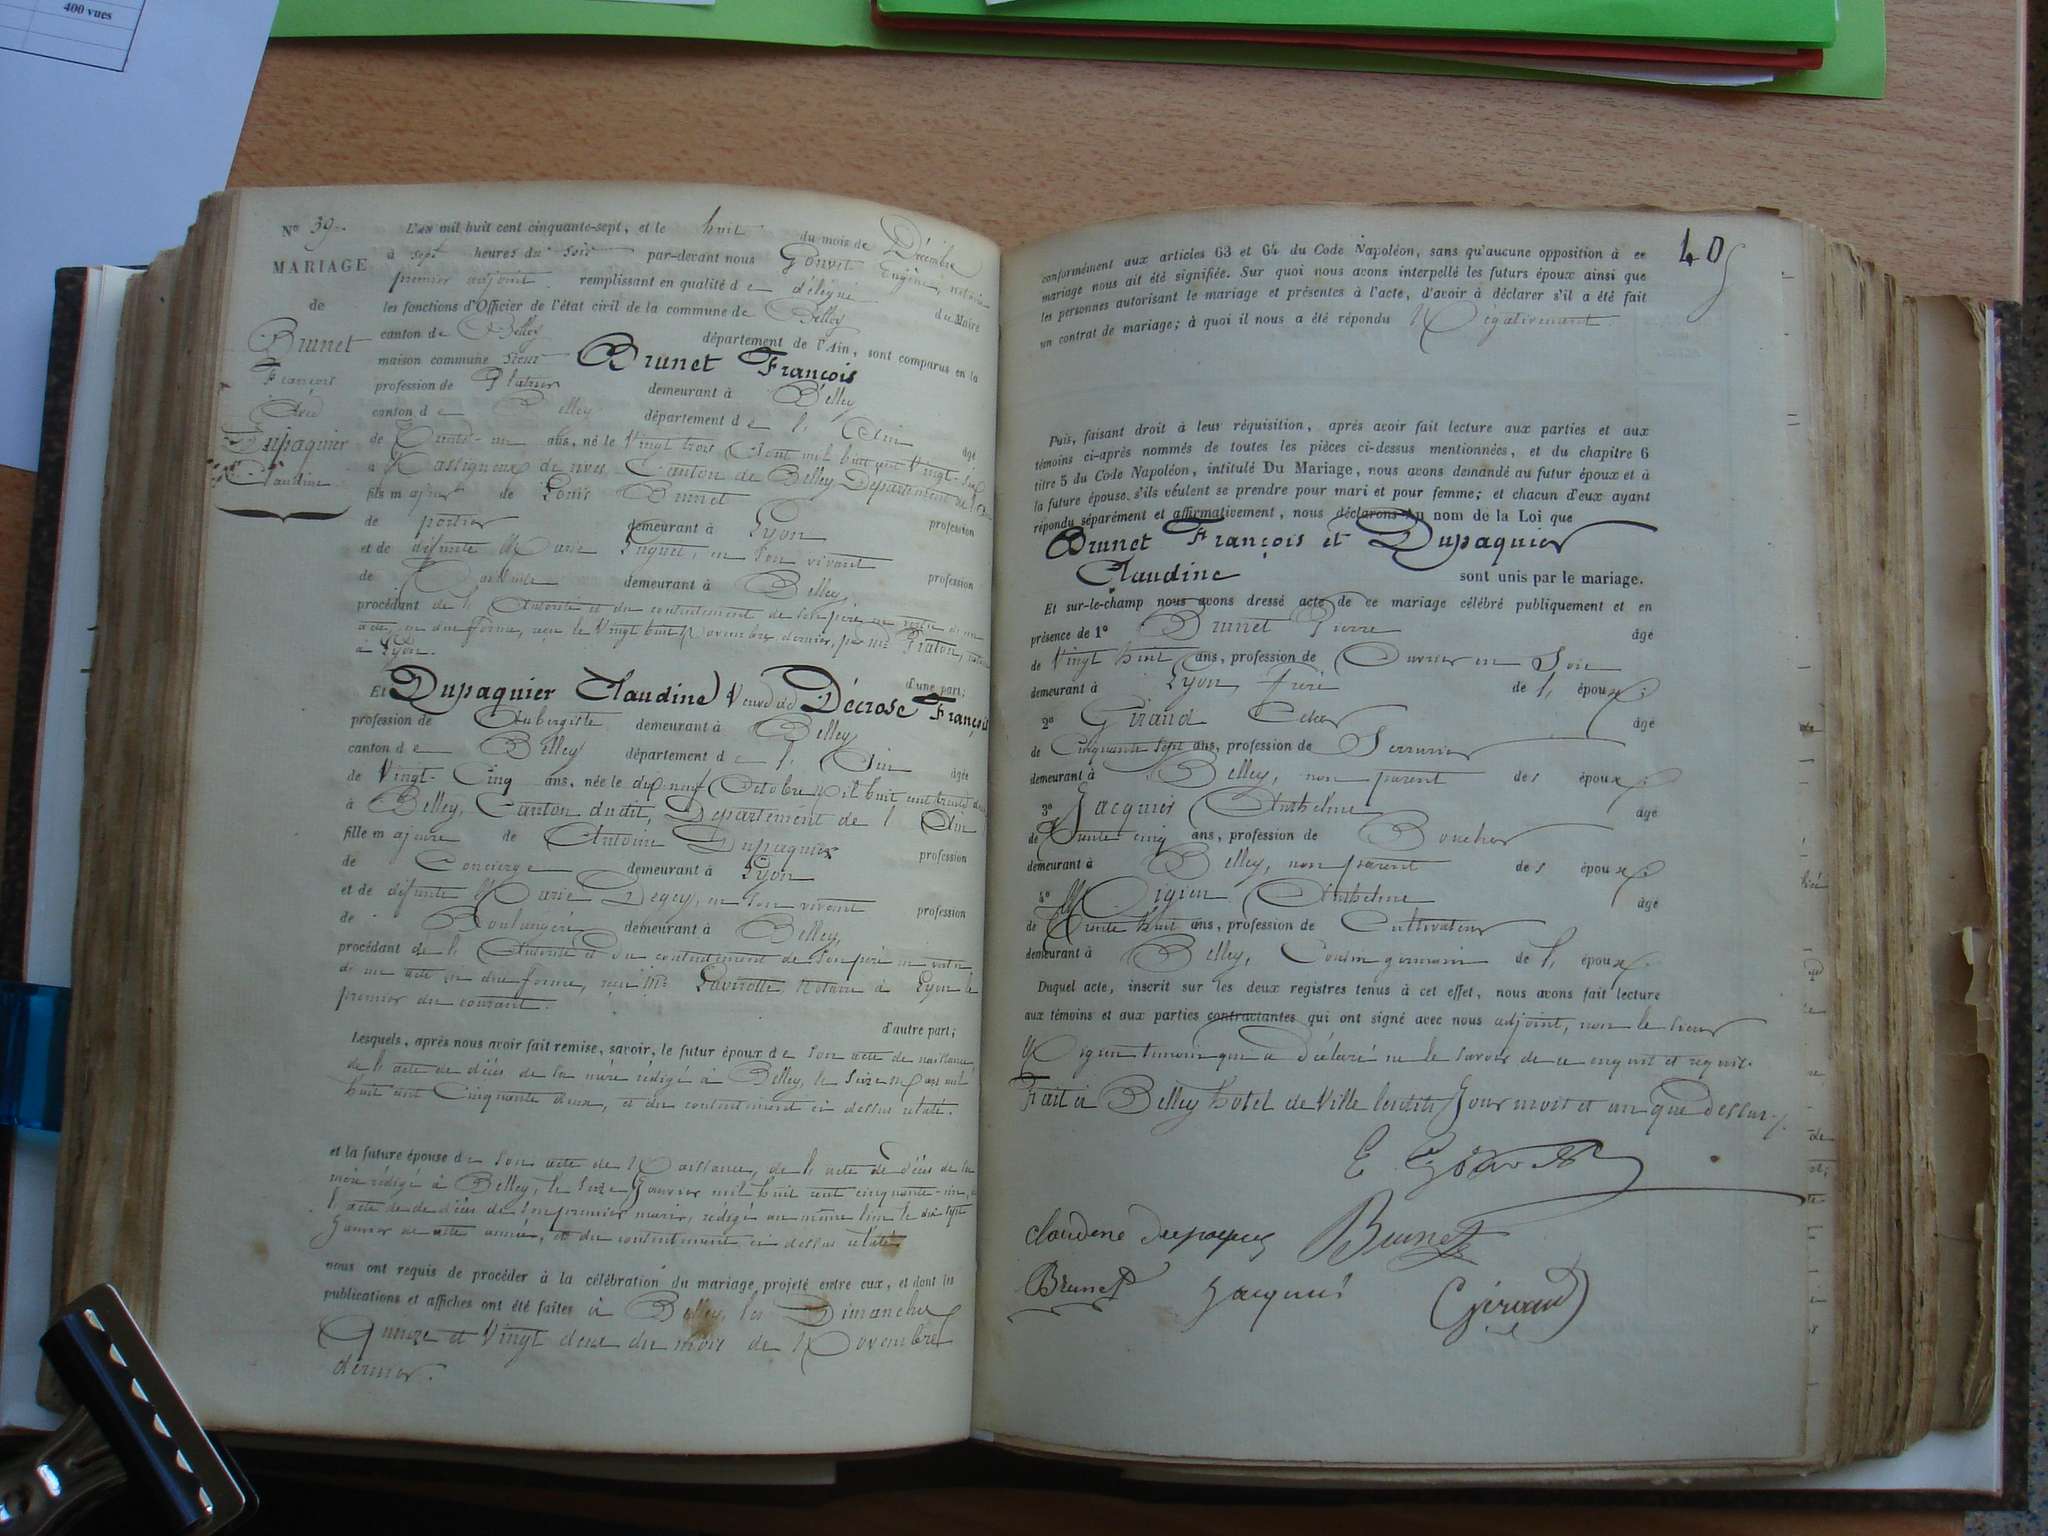 400 vues
Nº 39.
MARIAGE
de
Brunet
François
Et
Dupaquier
Claudine
L'an mil huit cent cinquante-sept, et le huit du mois de Décembre
à sept heures du soir par-devant nous Gonvit Eugène, notaire
premier adjoint remplissant en qualité de délégué du Maire
les fonctions d'Officier de l'état civil de la commune de Belley
canton de Belley département de l'Ain, sont comparus en la
maison commune sieur Brunet François
profession de Platrier demeurant à Belley
canton de Belley département de l'Ain âgé
de Trente-un ans, né le Vingt trois Août mil huit cent Vingt-six
à Massigneux de rives, Canton de Belley Département de l'Ain
fils majeur de Louis Brunet profession
de portier demeurant à Lyon
et de défunte Marie Huguet, en son vivant profession
de demeurant à Belley,
procédant de l'Autorité et du contentement de son père, en vertu d'un
acte, en due forme, reçu le Vingt huit Novembre dernier, par Me Fraton, notaire
à Lyon.
d'une part;
Et Dupaquier Claudine Veuve de Décrose François
profession de Aubergiste demeurant à Belley
canton de Belley département de l'Ain âgée
de Vingt-Cinq ans, née le dix neuf Octobre mil huit cent trente deux
à Belley, Canton dudit, Département de l'Ain
fille majeure de Antoine Dupaquier profession
de Concierge demeurant à Lyon
et de défunte Marie Degey, en son vivant profession
de Boulangère demeurant à Belley,
procédant de l'Autorité et du contentement de son père en vertu
d'un acte en due forme, reçu Me Lavirotte, Notaire à Lyon le
premier du courant.
d'autre part;
Lesquels, après nous avoir fait remise, savoir, le futur époux de son acte de naissance,
de l'acte de décès de la mère rédigé à Belley, le seize Mars mil
huit cent Cinquante deux, et du contentement ci dessus relaté.
et la future épouse de son acte de Naissance, de l'acte de décès de la
mère rédigé à Belley, le seize Janvier mil huit cent cinquante-un, et
l'acte de de décès de son premier mari, rédigé au même lieu le dix sept
Janvier de cette année, et du contentement ci dessus relaté
nous ont requis de procéder à la célébration du mariage projeté entre eux, et dont les
publications et affiches ont été faites à Belley, les Dimanches
Quinze et Vingt deux du mois de Novembre
dernier.
40
conformément aux articles 63 et 64 du Code Napoléon, sans qu'aucune opposition à ce
mariage nous ait été signifiée. Sur quoi nous avons interpellé les futurs époux ainsi que
les personnes autorisant le mariage et présentes à l'acte, d'avoir à déclarer s'il a été fait
un contrat de mariage; à quoi il nous a été répondu Négativement.
Puis, faisant droit à leur réquisition, après avoir fait lecture aux parties et aux
témoins ci-après nommés de toutes les pièces ci-dessus mentionnées, et du chapitre 6
titre 5 du Code Napoléon, intitulé Du Mariage, nous avons demandé au futur époux et à
la future épouse s'ils veulent se prendre pour mari et pour femme; et chacun d'eux ayant
répondu séparément et affirmativement, nous déclarons au nom de la Loi que
Brunet François et Dupaquier
Claudine sont unis par le mariage.
Et sur-le-champ nous avons dressé acte de ce mariage célébré publiquement et en
présence de 1º Brunet Pierre âgé
de Vingt huit ans, profession de Ouvrier en Soie
demeurant à Lyon, frère de l'époux;
2º Giraud âgé
de Cinquante sept ans, profession de Serrurier
demeurant à Belley, non parent des époux;
3º Jacquier Anthelme âgé
de Trente cinq ans, profession de Boucher
demeurant à Belley, non parent des époux;
4º Migieu Anthelme âgé
de Trente huit ans, profession de Cultivateur
demeurant à Belley, Cousin germain de l'époux.
Duquel acte, inscrit sur les deux registres tenus à cet effet, nous avons fait lecture
aux témoins et aux parties contractantes qui ont signé avec nous adjoint, non le sieur
Migieu témoin qui a déclaré ne le savoir de ce enquis et requis.
Fait à Belley hotel de Ville lesdits Jour mois et an que dessus.
E Gonvit
claudene dupaquiez Brunet
Brunet Jacquier Giraud